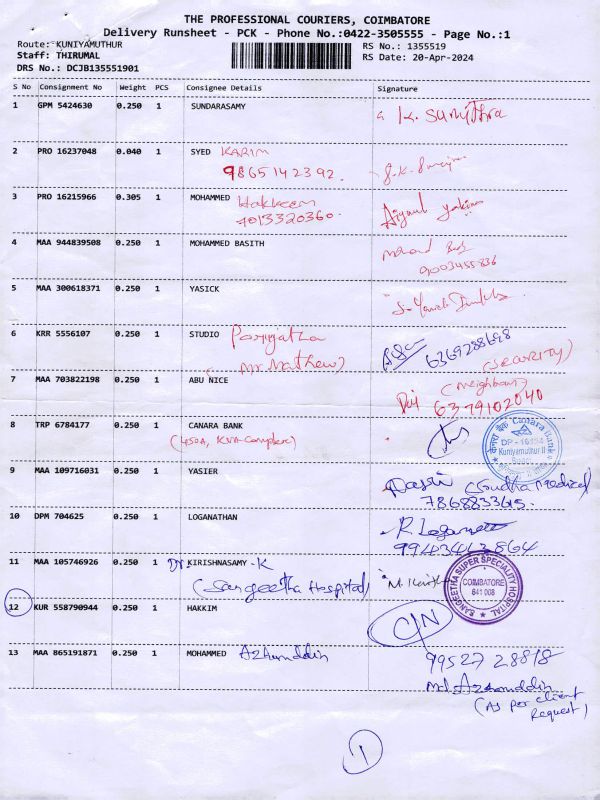 THE PROFESSIONAL COURIERS, COIMBATORE
Delivery Runsheet - PCK - Phone No.:0422-3505555 - Page No.:1
Route: KUNIYAMUTHUR
RS No.: 1355519
Staff: THIRUMAL
RS Date: 20-Apr-2024
DRS No.: DCJB135551901
S No Consignment No Weight PCS Consignee Details Signature
1 GPM 5424630 0.250 1 SUNDARASAMY
K. Sumithra
2 PRO 16237048 0.040 1 SYED KARIM
9865142392.
3 PRO 16215966 0.305 1 MOHAMMED Hakkeem
7013320360.
4 MAA 944839508 0.250 1 MOHAMMED BASITH
9003455836
5 MAA 300618371 0.250 1 YASICK
6 KRR 5556107 0.250 1 STUDIO
6369288698
(Mr Mathew) (SECURITY)
7 MAA 703822198 0.250 1 ABU NICE (Neighbour)
6379102040
8 TRP 6784177 0.250 1 CANARA BANK
(450A, KVA-Complex)
Canara Bank
Kuniyamuthur II
9 MAA 109716031 0.250 1 YASIER
(Sudha Medical)
7868833615.
10 DPM 704625 0.250 1 LOGANATHAN R. Loganath
11 MAA 105746926 0.250 1 Dr. KIRISHNASAMY -K
(Sangeetha Hospital)
SANGEETHA SUPER SPECIALITY HOSPITAL
COIMBATORE
641 008
12 KUR 558790944 0.250 1 HAKKIM
C/N
13 MAA 865191871 0.250 1 MOHAMMED Azharuddin
99527 28818
Md Azharuddin
(As per client
Request)
1